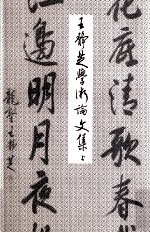 花底清歌春
王靜芝學術論文集 上
江邊明月夜
王靜芝